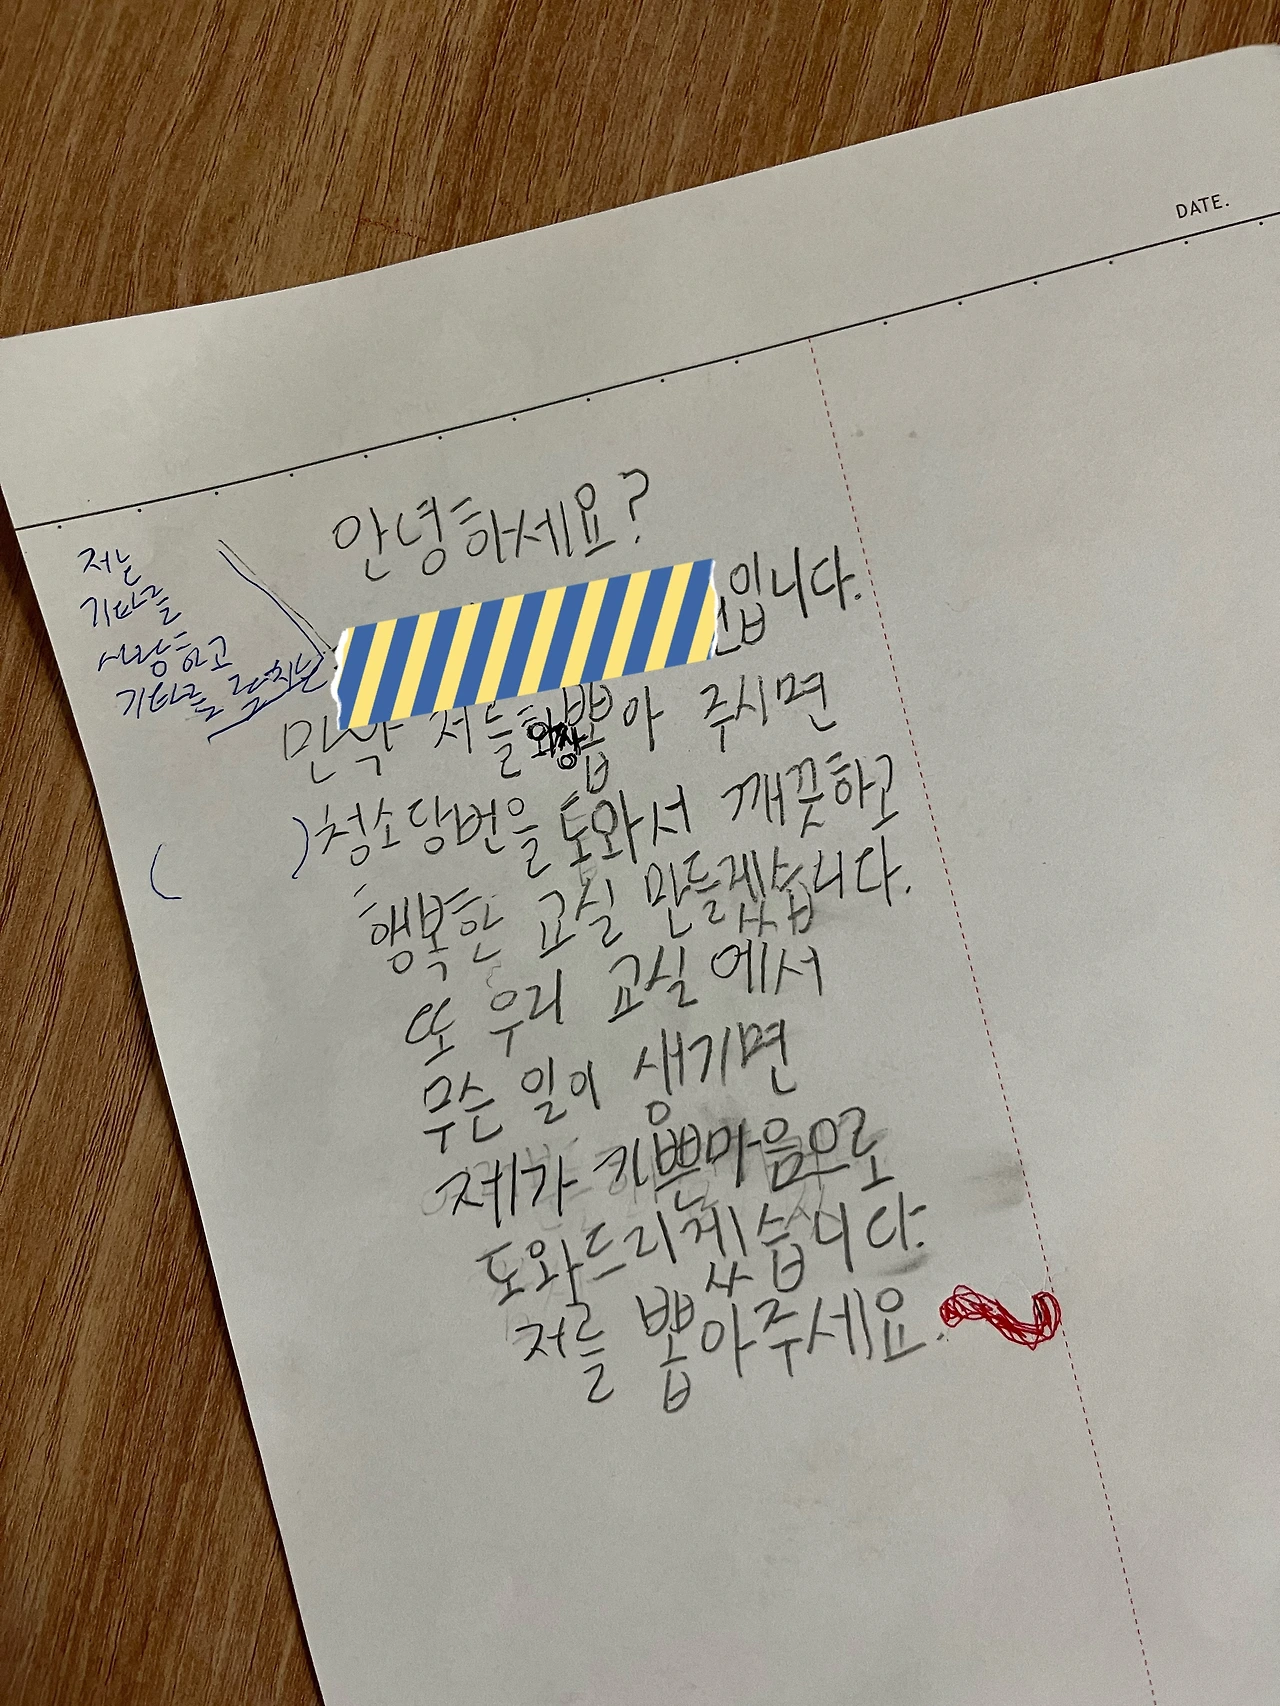 DATE.
안녕하세요?
저는
기타를
사랑하고
기타를 잘치는
입니다.
만약 저를 회장 뽑아 주시면
( )청소당번을 도와서 깨끗하고
행복한 교실 만들겠습니다.
또 우리 교실에서
무슨 일이 생기면
제가 기쁜마음으로
도와드리겠습니다.
저를 뽑아주세요.